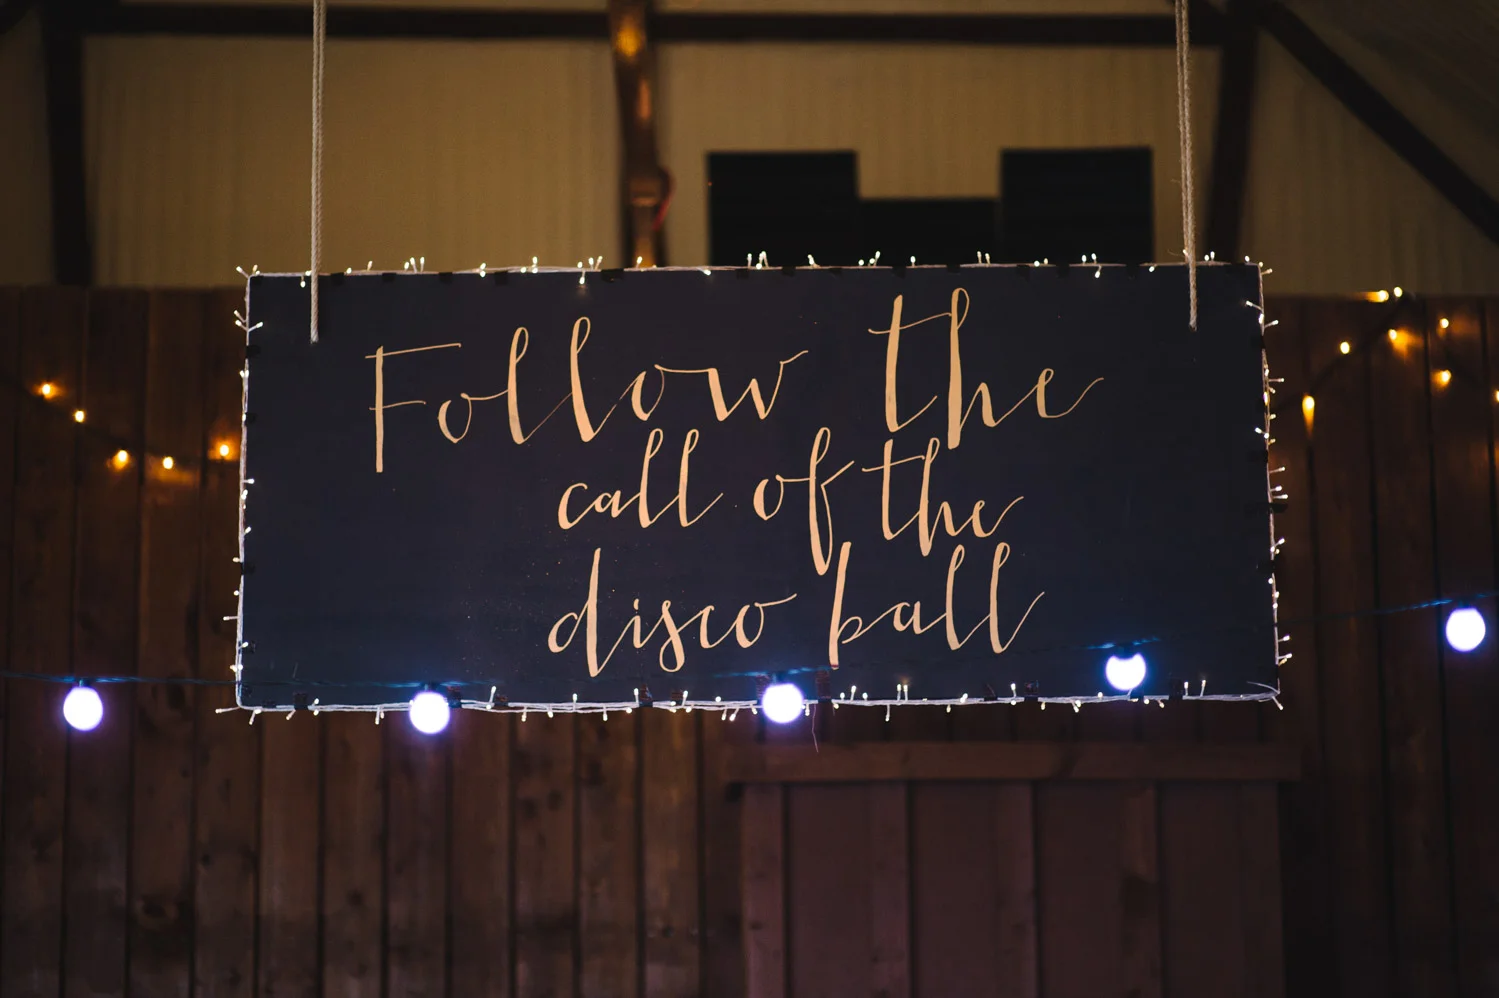 Follow the
call of the
disco ball